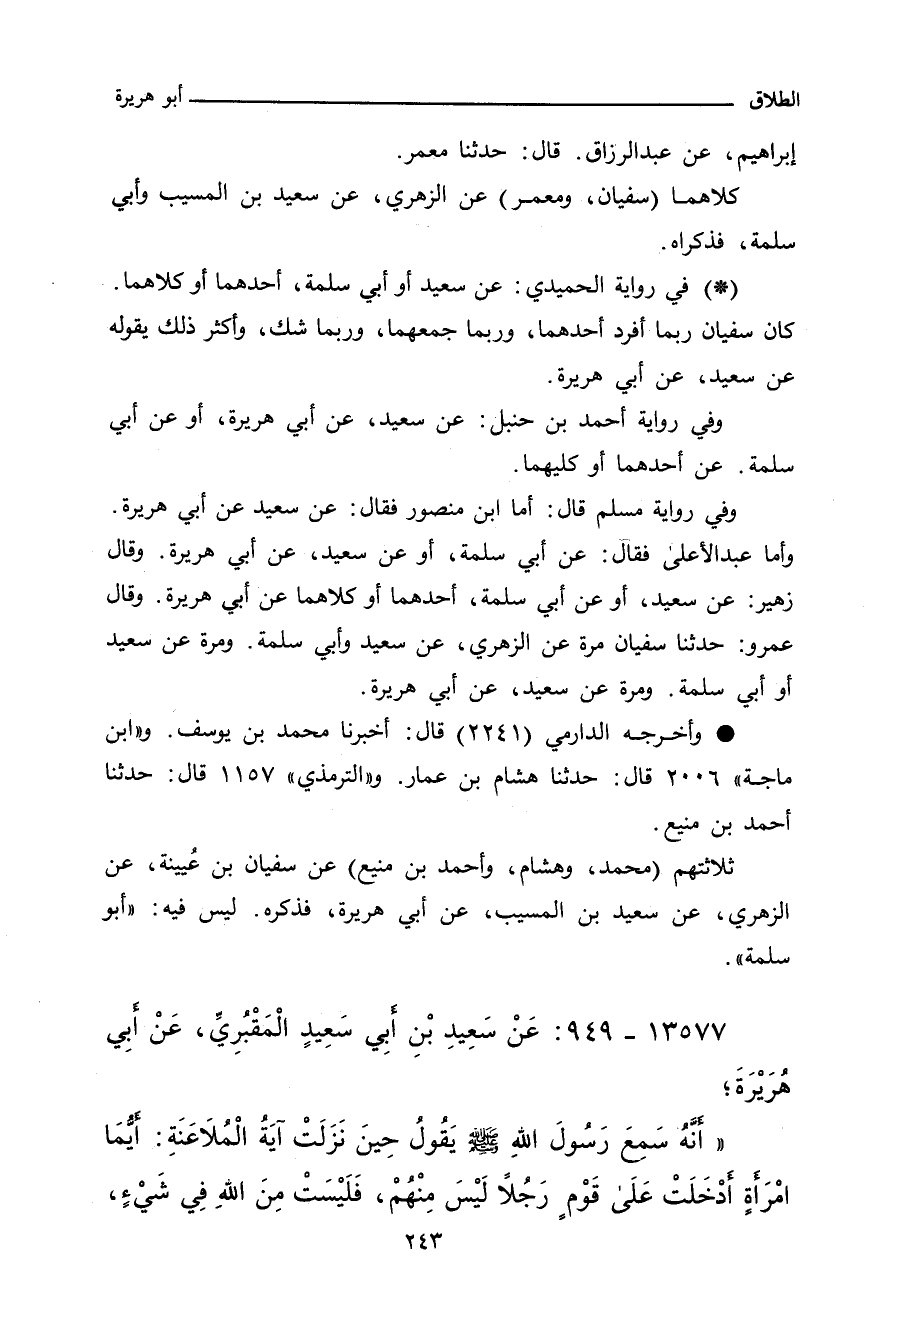 الطلاق ـــــــــــــــــــــــــــــــــــــــ أبو هريرة
إبراهيم، عن عبدالرزاق. قال: حدثنا معمر.
كلاهما (سفيان، ومعمر) عن الزهري، عن سعيد بن المسيب وأبي
سلمة، فذكراه.
(*) في رواية الحميدي: عن سعيد أو أبي سلمة، أحدهما أو كلاهما.
كان سفيان ربما أفرد أحدهما، وربما جمعهما، وربما شك، وأكثر ذلك يقوله
عن سعيد، عن أبي هريرة.
وفي رواية أحمد بن حنبل: عن سعيد، عن أبي هريرة، أو عن أبي
سلمة. عن أحدهما أو كليهما.
وفي رواية مسلم قال: أما ابن منصور فقال: عن سعيد عن أبي هريرة.
وأما عبدالأعلىٰ فقال: عن أبي سلمة، أو عن سعيد، عن أبي هريرة. وقال
زهير: عن سعيد، أو عن أبي سلمة، أحدهما أو كلاهما عن أبي هريرة. وقال
عمرو: حدثنا سفيان مرة عن الزهري، عن سعيد وأبي سلمة. ومرة عن سعيد
أو أبي سلمة. ومرة عن سعيد، عن أبي هريرة.
● وأخرجه الدارمي (٢٢٤١) قال: أخبرنا محمد بن يوسف. و«ابن
ماجة» ٢٠٠٦ قال: حدثنا هشام بن عمار. و«الترمذي» ١١٥٧ قال: حدثنا
أحمد بن منيع.
ثلاثتهم (محمد، وهشام، وأحمد بن منيع) عن سفيان بن عُيينة، عن
الزهري، عن سعيد بن المسيب، عن أبي هريرة، فذكره. ليس فيه: «أبو
سلمة».
١٣٥٧٧ ـ ٩٤٩: عَنْ سَعِيدِ بْنِ أَبِي سَعِيدٍ الْمَقْبُرِيِّ، عَنْ أَبِي
هُرَيْرَةَ؛
« أَنَّهُ سَمِعَ رَسُولَ اللهِ ﷺ يَقُولُ حِينَ نَزَلَتْ آيَةُ الْمُلَاعَنَةِ: أَيُّمَا
امْرَأَةٍ أَدْخَلَتْ عَلَىٰ قَوْمٍ رَجُلًا لَيْسَ مِنْهُمْ، فَلَيْسَتْ مِنَ اللهِ فِي شَيْءٍ،
٢٤٣